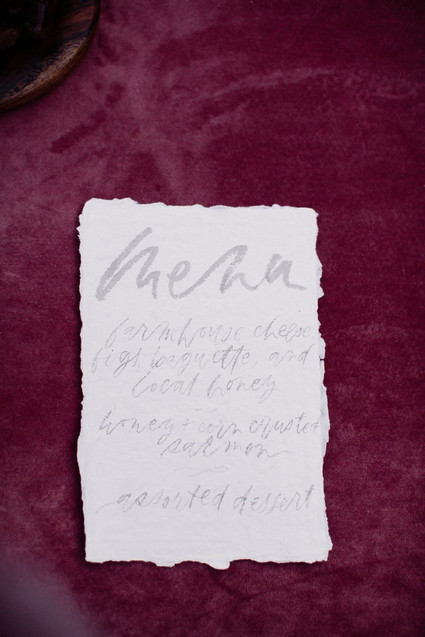 menu
farmhouse cheese
figs, baguette, and
local honey
honey + corn crusted
salmon
assorted dessert